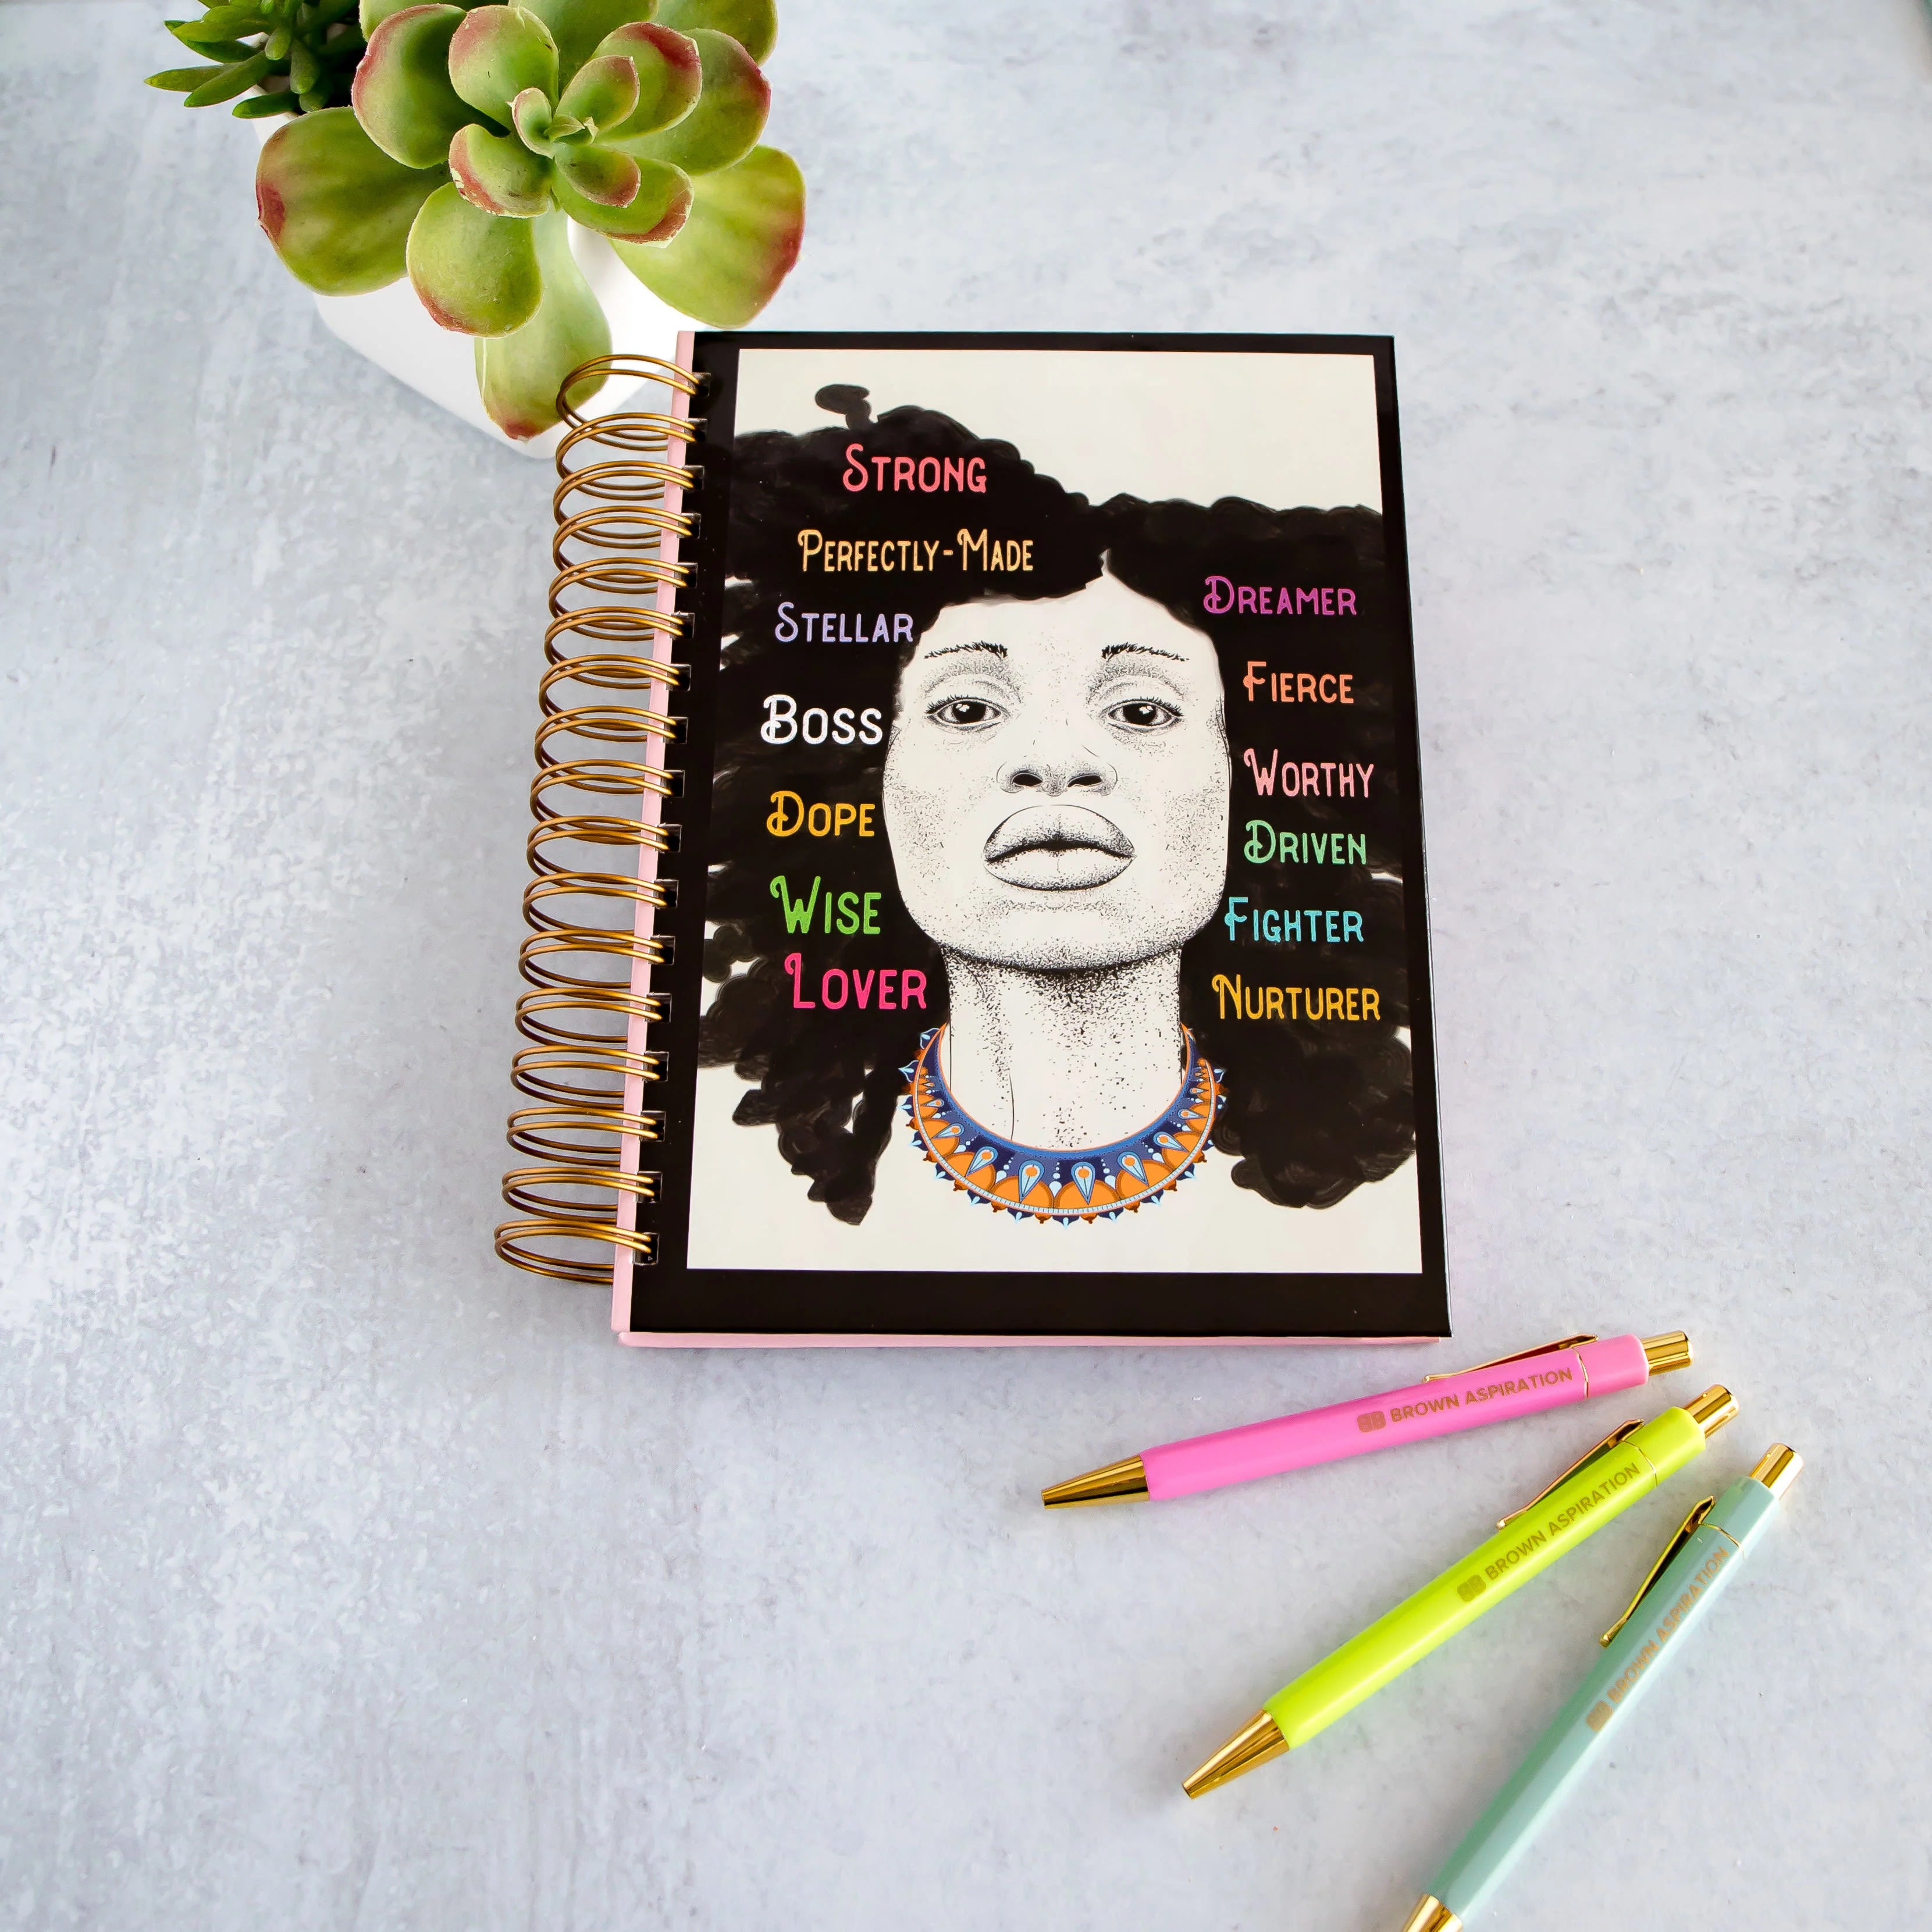 Strong
Perfectly-Made
Stellar
Boss
Dope
Wise
Lover
Dreamer
Fierce
Worthy
Driven
Fighter
Nurturer
BROWN ASPIRATION
BROWN ASPIRATION
BROWN ASPIRATION